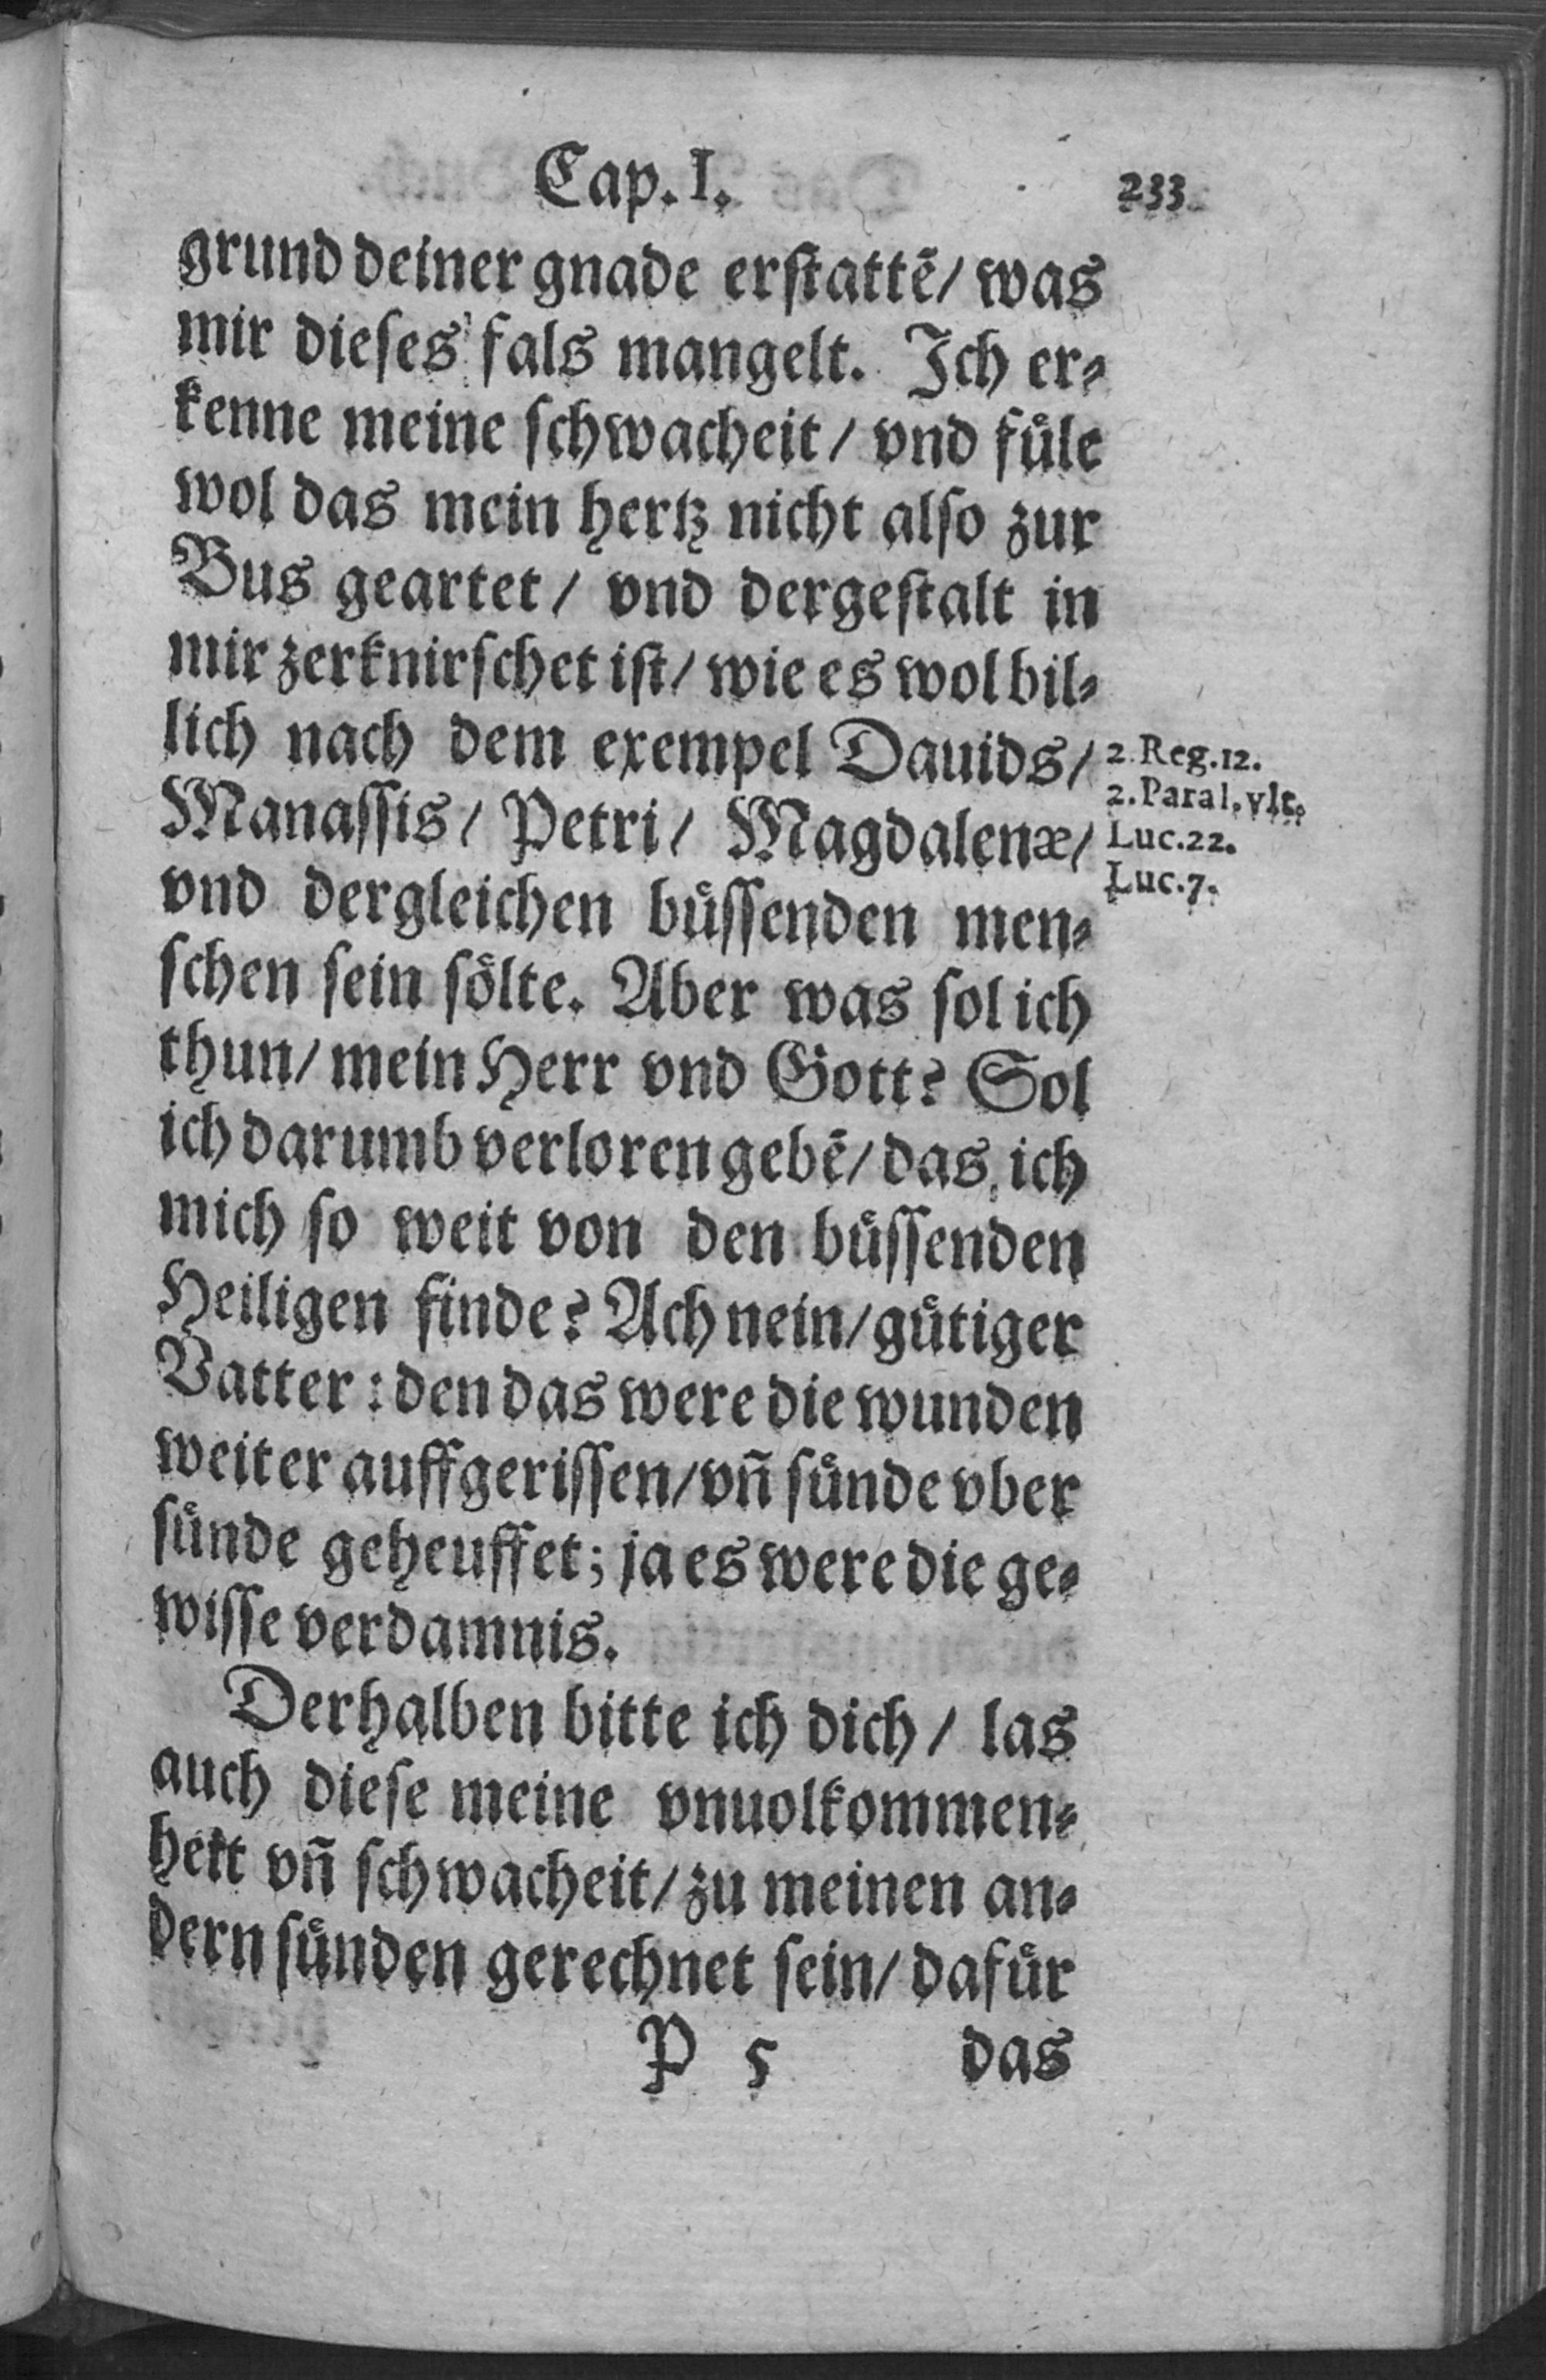 Cap. I. 233
grund deiner gnade erstattē/ was
mir dieses fals mangelt. Ich er⸗
kenne meine schwacheit/ vnd fuͤle
wol das mein hertz nicht also zur
Bus geartet/ vnd dergestalt in
mir zerknirschet ist/ wie es wol bil⸗
lich nach dem exempel Dauids/
2. Reg. 12.
Manassis/ Petri/ Magdalenæ/
2. Paral. vlt.
Luc. 22.
vnd dergleichen buͤssenden men⸗
Luc. 7.
schen sein soͤlte. Aber was sol ich
thun/ mein Herr vnd Gott? Sol
ich darumb verloren gebē/ das ich
mich so weit von den buͤssenden
Heiligen finde? Ach nein/ guͤtiger
Vatter: den das were die wunden
weiter auffgerissen/ vn̄ suͤnde vber
suͤnde geheuffet; ja es were die ge⸗
wisse verdamnis.
Derhalben bitte ich dich/ las
auch diese meine vnuolkommen⸗
heit vn̄ schwacheit/ zu meinen an⸗
dern suͤnden gerechnet sein/ dafuͤr
P 5 das